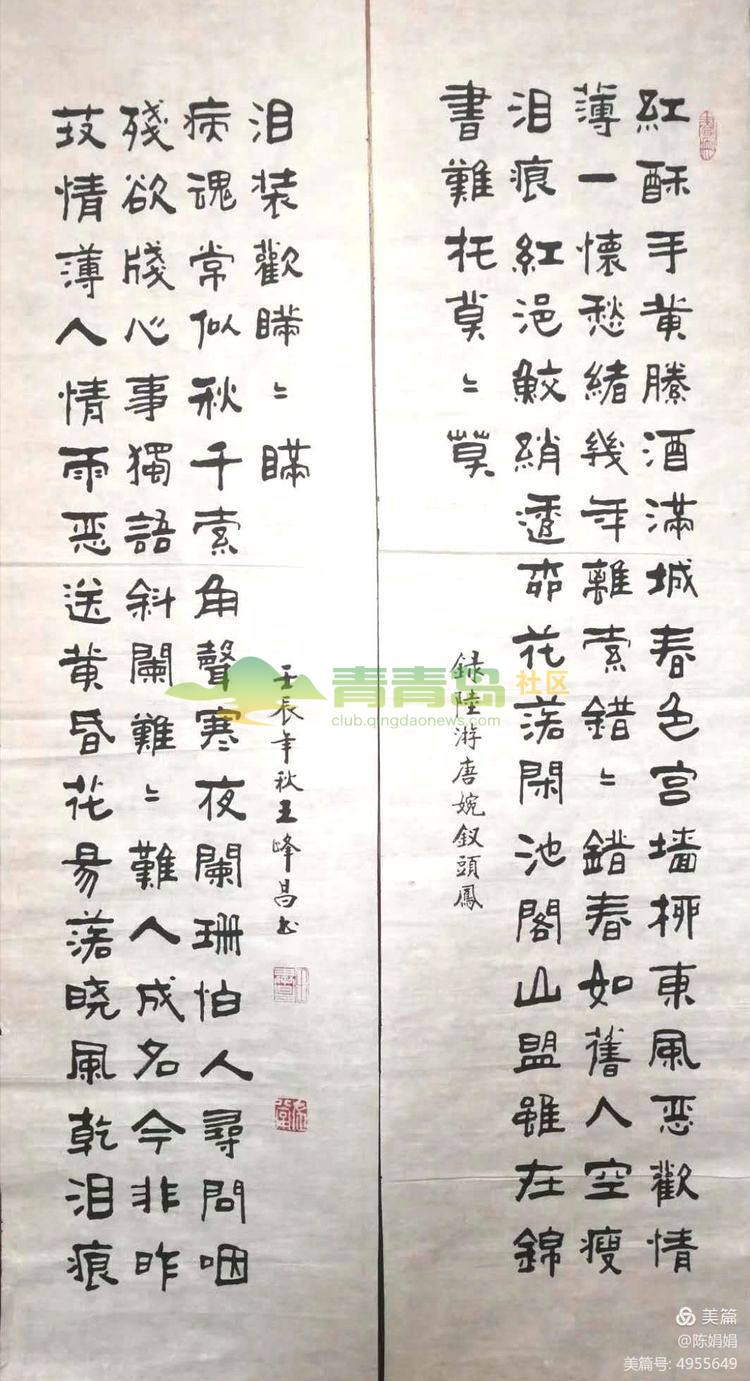 紅酥手黄縢酒滿城春色宫墙栁東風恶歡情
薄一懷愁緒幾年離索錯〻錯春如舊人空瘦
泪痕紅浥鮫綃透花落閑池閣山盟雖在錦
書難托莫〻莫
録陸游唐婉釵頭鳳
情薄人情雨恶送黄昏花易落晓風乾泪痕
殘欲牋心事獨語斜闌難〻難人成名今非昨
病魂常似秋千索角聲寒夜闌珊怕人尋問咽
泪装歡瞞〻瞞
壬辰年秋王峰昌书
青青岛社区
club.qingdaonews.com
美篇
@陈娟娟
美篇号: 4955649